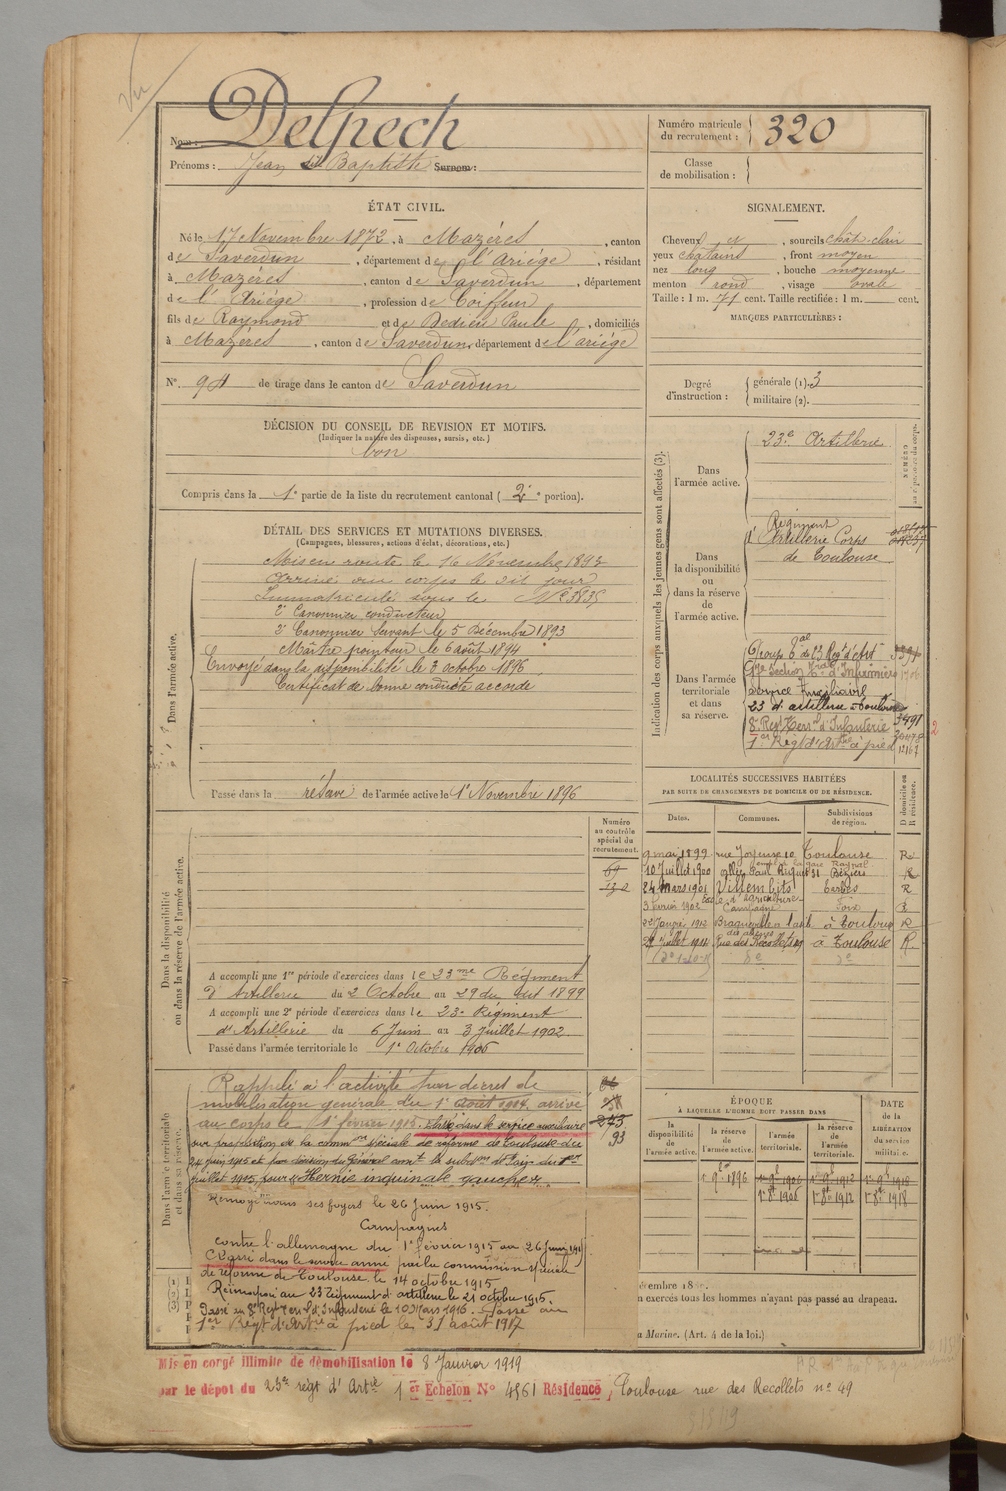 Vu
Nom: Delpech
Prénoms: Jean dit Baptiste Surnom:
Numéro matricule du recrutement: 320
Classe de mobilisation:
ÉTAT CIVIL.
Né le 17 Novembre 1872, à Mazères, canton
de Saverdun, département de l'Ariège, résidant
à Mazères, canton de Saverdun, département
de l'Ariège, profession de Coiffeur
fils de Raymond et de Dedieu Paule, domiciliés
à Mazères, canton de Saverdun, département de l'ariège
N° 94 de tirage dans le canton de Saverdun
SIGNALEMENT.
Cheveux et, sourcils chât-clair
yeux chatains, front moyen
nez long, bouche moyenne
menton rond, visage ovale
Taille: 1 m. 71 cent. Taille rectifiée: 1 m. cent.
MARQUES PARTICULIÈRES:
Degré d'instruction: générale (1). 3
militaire (2).
DÉCISION DU CONSEIL DE REVISION ET MOTIFS.
(Indiquer la nature des dispenses, sursis, etc.)
bon
Compris dans la 1e partie de la liste du recrutement cantonal (2e portion).
DÉTAIL DES SERVICES ET MUTATIONS DIVERSES.
(Campagnes, blessures, actions d'éclat, décorations, etc.)
Dans l'armée active.
Mis en route le 16 Novembre 1893
Arrivé au corps le dit jour
Immatriculé sous le N° 3835
2e Canonnier conducteur
2e Canonnier Servant le 5 Décembre 1893
Maître pointeur le 6 août 1894
Envoyé dans la disponibilité le 3 octobre 1896
Certificat de bonne conduite accordé
Passé dans la réserve de l'armée active le 1er Novembre 1896
Indication des corps auxquels les jeunes gens sont affectés (3).
NUMÉRO
Dans l'armée active.
23e Artillerie
Dans la disponibilité ou dans la réserve de l'armée active.
Régiment
d'Artillerie Corps
de Toulouse
Dans l'armée territoriale et dans sa réserve.
Groupe tal de 23 Régt d'Art
17e Section tale d'Infirmiers
Service Auxiliaire
23 d'artillerie à Toulouse
8e Regt d'Infanterie 3491
1er Régt d'Artie à pied
2
LOCALITÉS SUCCESSIVES HABITÉES
PAR SUITE DE CHANGEMENTS DE DOMICILE OU DE RÉSIDENCE.
Dates. Communes. Subdivisions de région. D domicile ou R résidence.
9 mai 1899 rue Joyeuse 10 Toulouse R
10 Juillet 1900 allée Paul Riquet 31 Béziers R
24 Mars 1901 Villembits Tarbes R
Foix R
à Toulouse R
Juillet 1912 Rue des Récollets 49 à Toulouse R
Numéro au contrôle spécial du recrutement.
Dans la disponibilité ou dans la réserve de l'armée active.
A accompli une 1re période d'exercices dans le 23me Régiment
d'Artillerie du 2 Octobre au 29 du dit 1899
A accompli une 2e période d'exercices dans le 23e Régiment
d'Artillerie du 6 Juin au 3 Juillet 1902
Passé dans l'armée territoriale le 1er Octobre 1906
Dans l'armée territoriale et dans sa réserve.
Rappelé à l'activité par décret de
mobilisation générale du 1er Août 1914. arrivé
au corps le 1er février 1915. Classé dans le service auxiliaire
sur proposition de la common spéciale de réforme de Toulouse du
24 juin 1915 et par décision du Général comt la subdon du 1er
juillet 1915, pour "Hernie inguinale gauche"
Renvoyé dans ses foyers le 26 Juin 1915.
Campagnes
contre l'allemagne du 1er février 1915 au 26 juin 1915
Classé dans le service armé par la commission spéciale
de réforme de Toulouse le 14 octobre 1915
Réincorporé au 23 Régiment d'artillerie le 21 octobre 1915
Passé au 8e Regt d'Infanterie le 10 Mars 1916. Passé au
1er Régt d'Artie à pied le 31 août 1917
243
93
ÉPOQUE
À LAQUELLE L'HOMME DOIT PASSER DANS
la disponibilité de l'armée active. la réserve de l'armée active. l'armée territoriale. la réserve de l'armée territoriale.
DATE de la LIBÉRATION du service militaire.
1er 9bre 1896
1er 8bre 1906 1er 8bre 1912 1er 8bre 1918
décembre 18
n exercés tous les hommes n'ayant pas passé au drapeau.
Marine. (Art. 4 de la loi.)
Mis en congé illimité de démobilisation le 8 Janvier 1919
par le dépot du 23e régt d'Artie 1er Echelon N° 4561 Résidence, Toulouse rue des Recollets n° 49